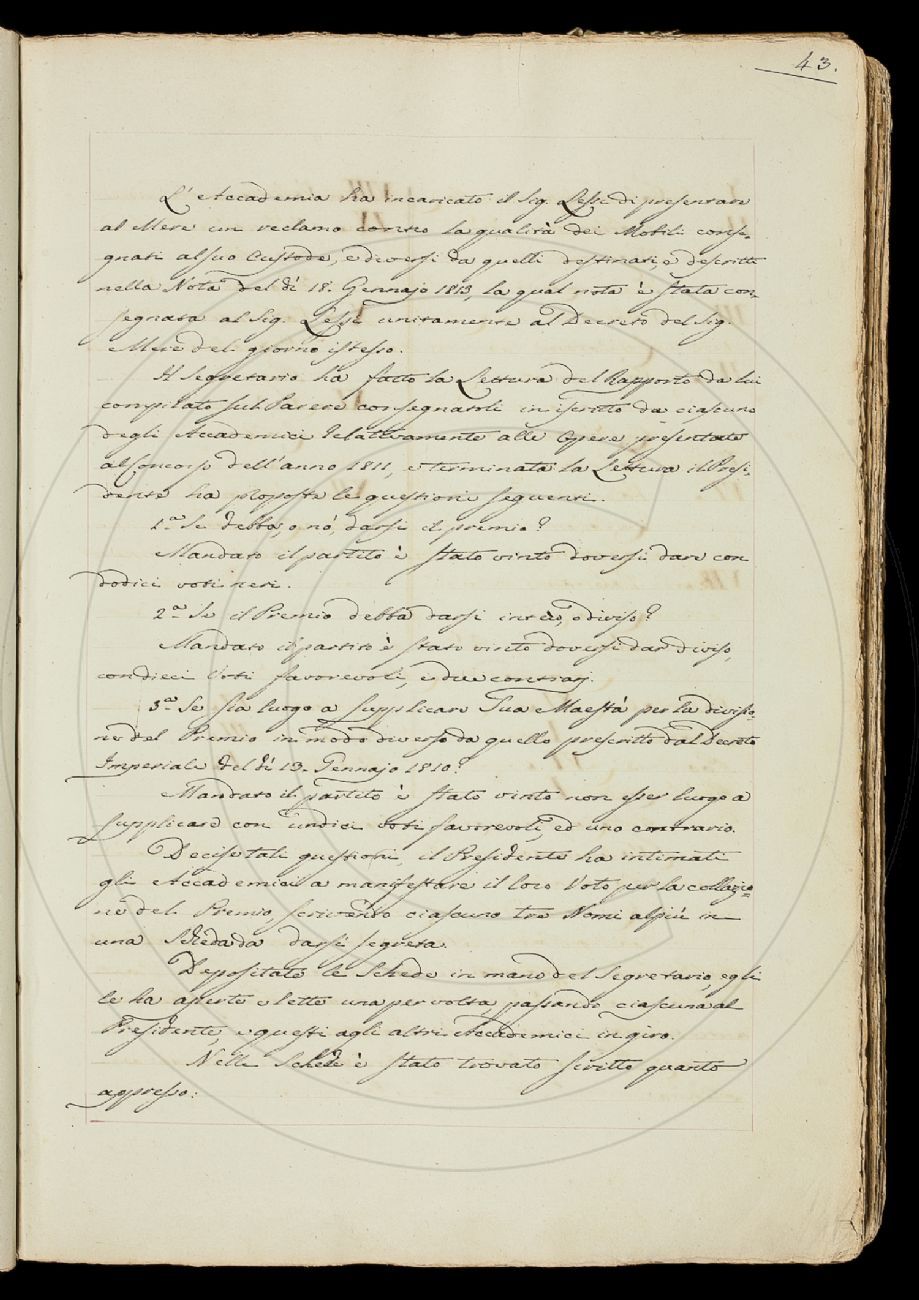 43.
L'Accademia ha incaricato il Sig. Lessi di presentare
al Mere un reclamo contro la qualità dei Mobili conse-
gnati al suo Custode, e diversi da quelli destinati, e descritti
nella Nota del dì 18. Gennajo 1813, la qual nota è stata con-
segnata al Sig. Lessi unitamente al Decreto del Sig.
Mere del giorno istesso.
Il Segretario ha fatto la Lettura del Rapporto da lui
compilato sul Parere consegnatoli in iscritto da ciascuno
degli Accademici relativamente alle Opere presentate
al Concorso dell'anno 1811, e terminata la Lettura il Presi-
dente ha proposte le questioni seguenti.
1.a Se debba, o nò, darsi il premio?
Mandato il partito è stato vinto doversi dare con
dodici voti neri.
2.a Se il Premio debba darsi intero, o diviso?
Mandato il partito è stato vinto doversi dar diviso,
con dieci Voti favorevoli, e due contrarj.
3.a Se sia luogo a supplicare Sua Maestà per la divisio-
ne del Premio in modo diverso da quello prescritto dal Decreto
Imperiale del dì 13. Gennajo 1810?
Mandato il partito è stato vinto non esser luogo a
supplicare con undici voti favorevoli, ed uno contrario.
Decise tali questioni, il Presidente ha intimati
gli Accademici a manifestare il loro Voto per la collazio=
ne del Premio, scrivendo ciascuno tre Nomi al più in
una Scheda da darsi segreta.
Depositate le Schede in mano del Segretario, egli
le ha aperte e lette una per volta, passando ciascuna al
Presidente, e questi agli altri Accademici in giro.
Nelle Schede è stato trovato scritto quanto
appresso: